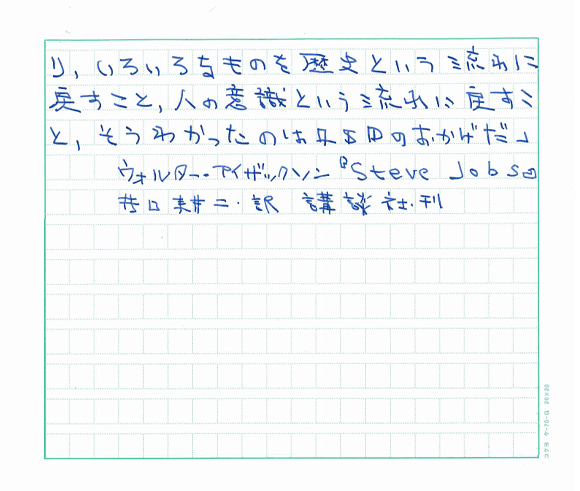 り、いろいろなものを歴史という流れに
戻すこと、人の意識という流れに戻すこ
と、そうわかったのはLSDのおかげだ」
ウォルター・アイザックソン『Steve Jobs』
井口耕二・訳 講談社・刊